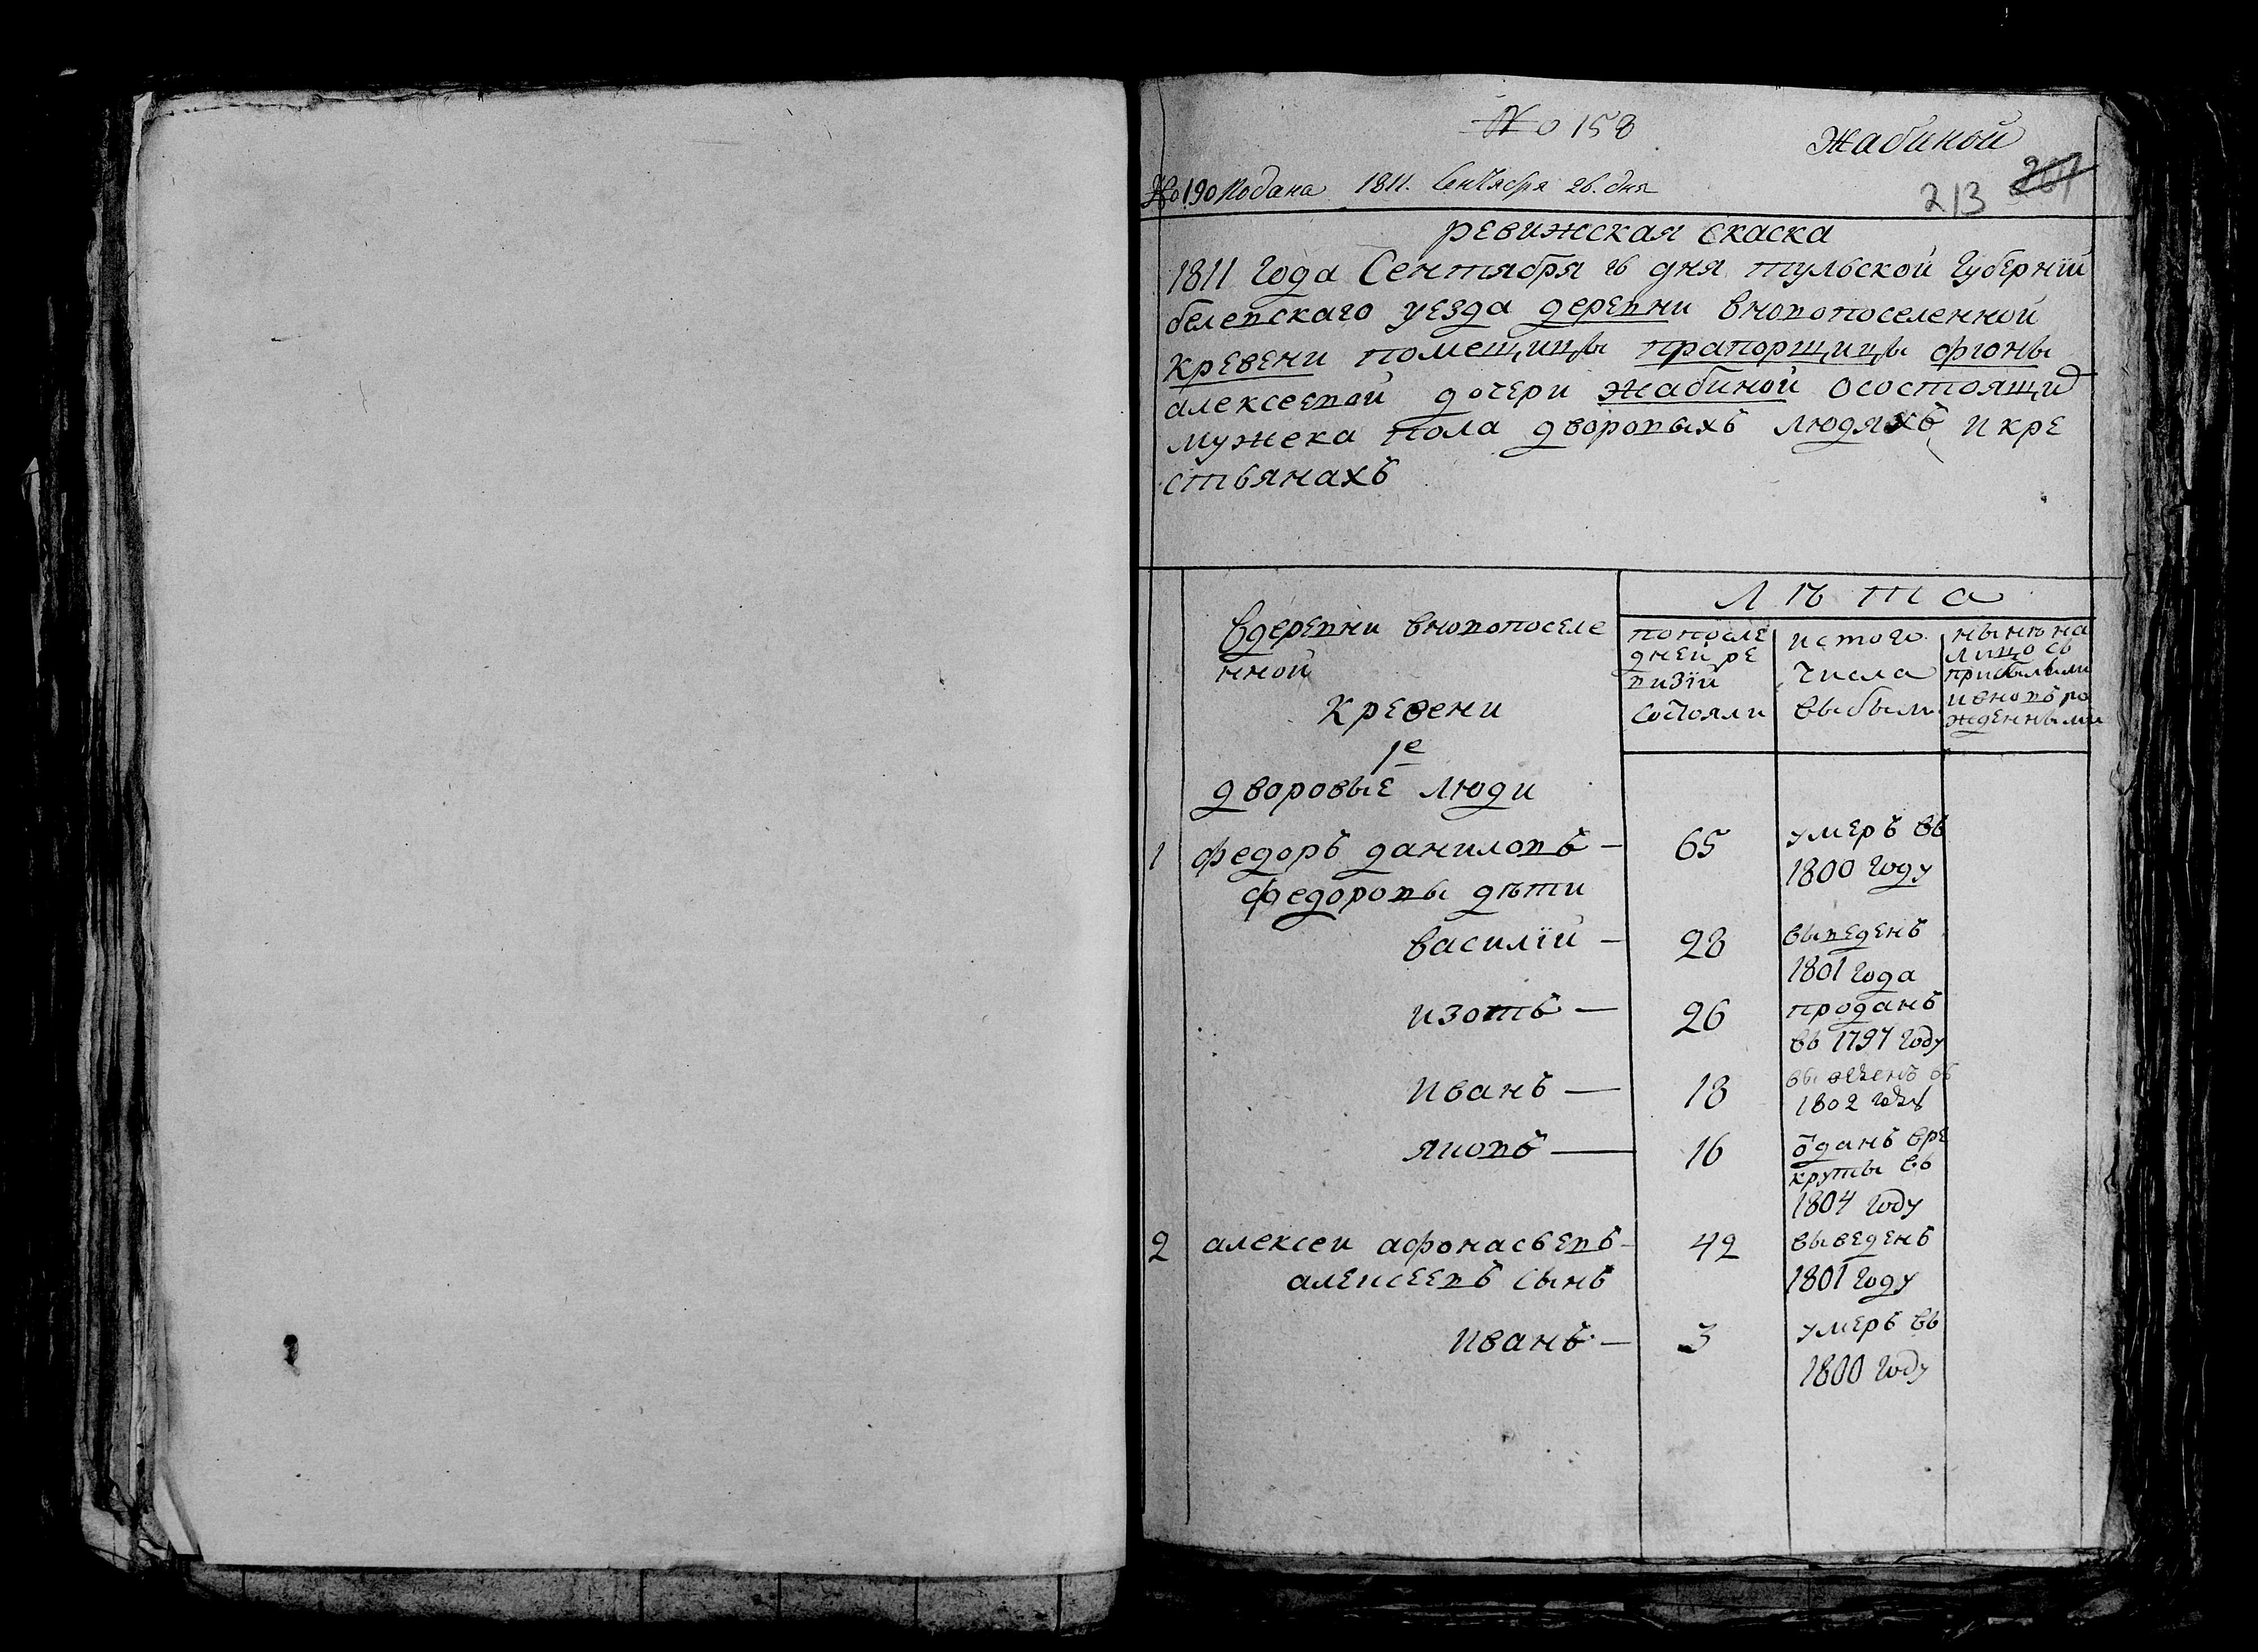 No 158
Жабиной
No 190 Подана 1811. Сентября 26. дня
213 201
ревижская скаска
1811 Года Сентября 26 дня тульской Губернїи
белевскаго уезда деревни вновопоселенной
кревени помещицы прапорщицы фионы
алексеевой дочери жабиной осостоящи
мужека пола дворовыхъ людяхъ икре
стьянахъ
Лѣта
вдеревни вновопоселе
нной
Кревени
1е
дворовые люди
попосле
дней ре
визїи
состояли
истого
числа
выбыли
нынѣ на
лицо съ
прибылыми
ивновърo
жденными
1 федоръ даниловъ — 65 умеръ въ
1800 Году
федоровы дѣти
василїй — 28 выведенъ
1801 Года
изотъ — 26 проданъ
въ 1797 Году
Иванъ — 18 выведенъ въ
1802 Году
яковъ — 16 оданъ вре
круты въ
1804 Году
2 алексеи афонасьевъ — 42 выведенъ
1801 Году
алексеевъ сынъ
Иванъ — 3 умеръ въ
1800 Году